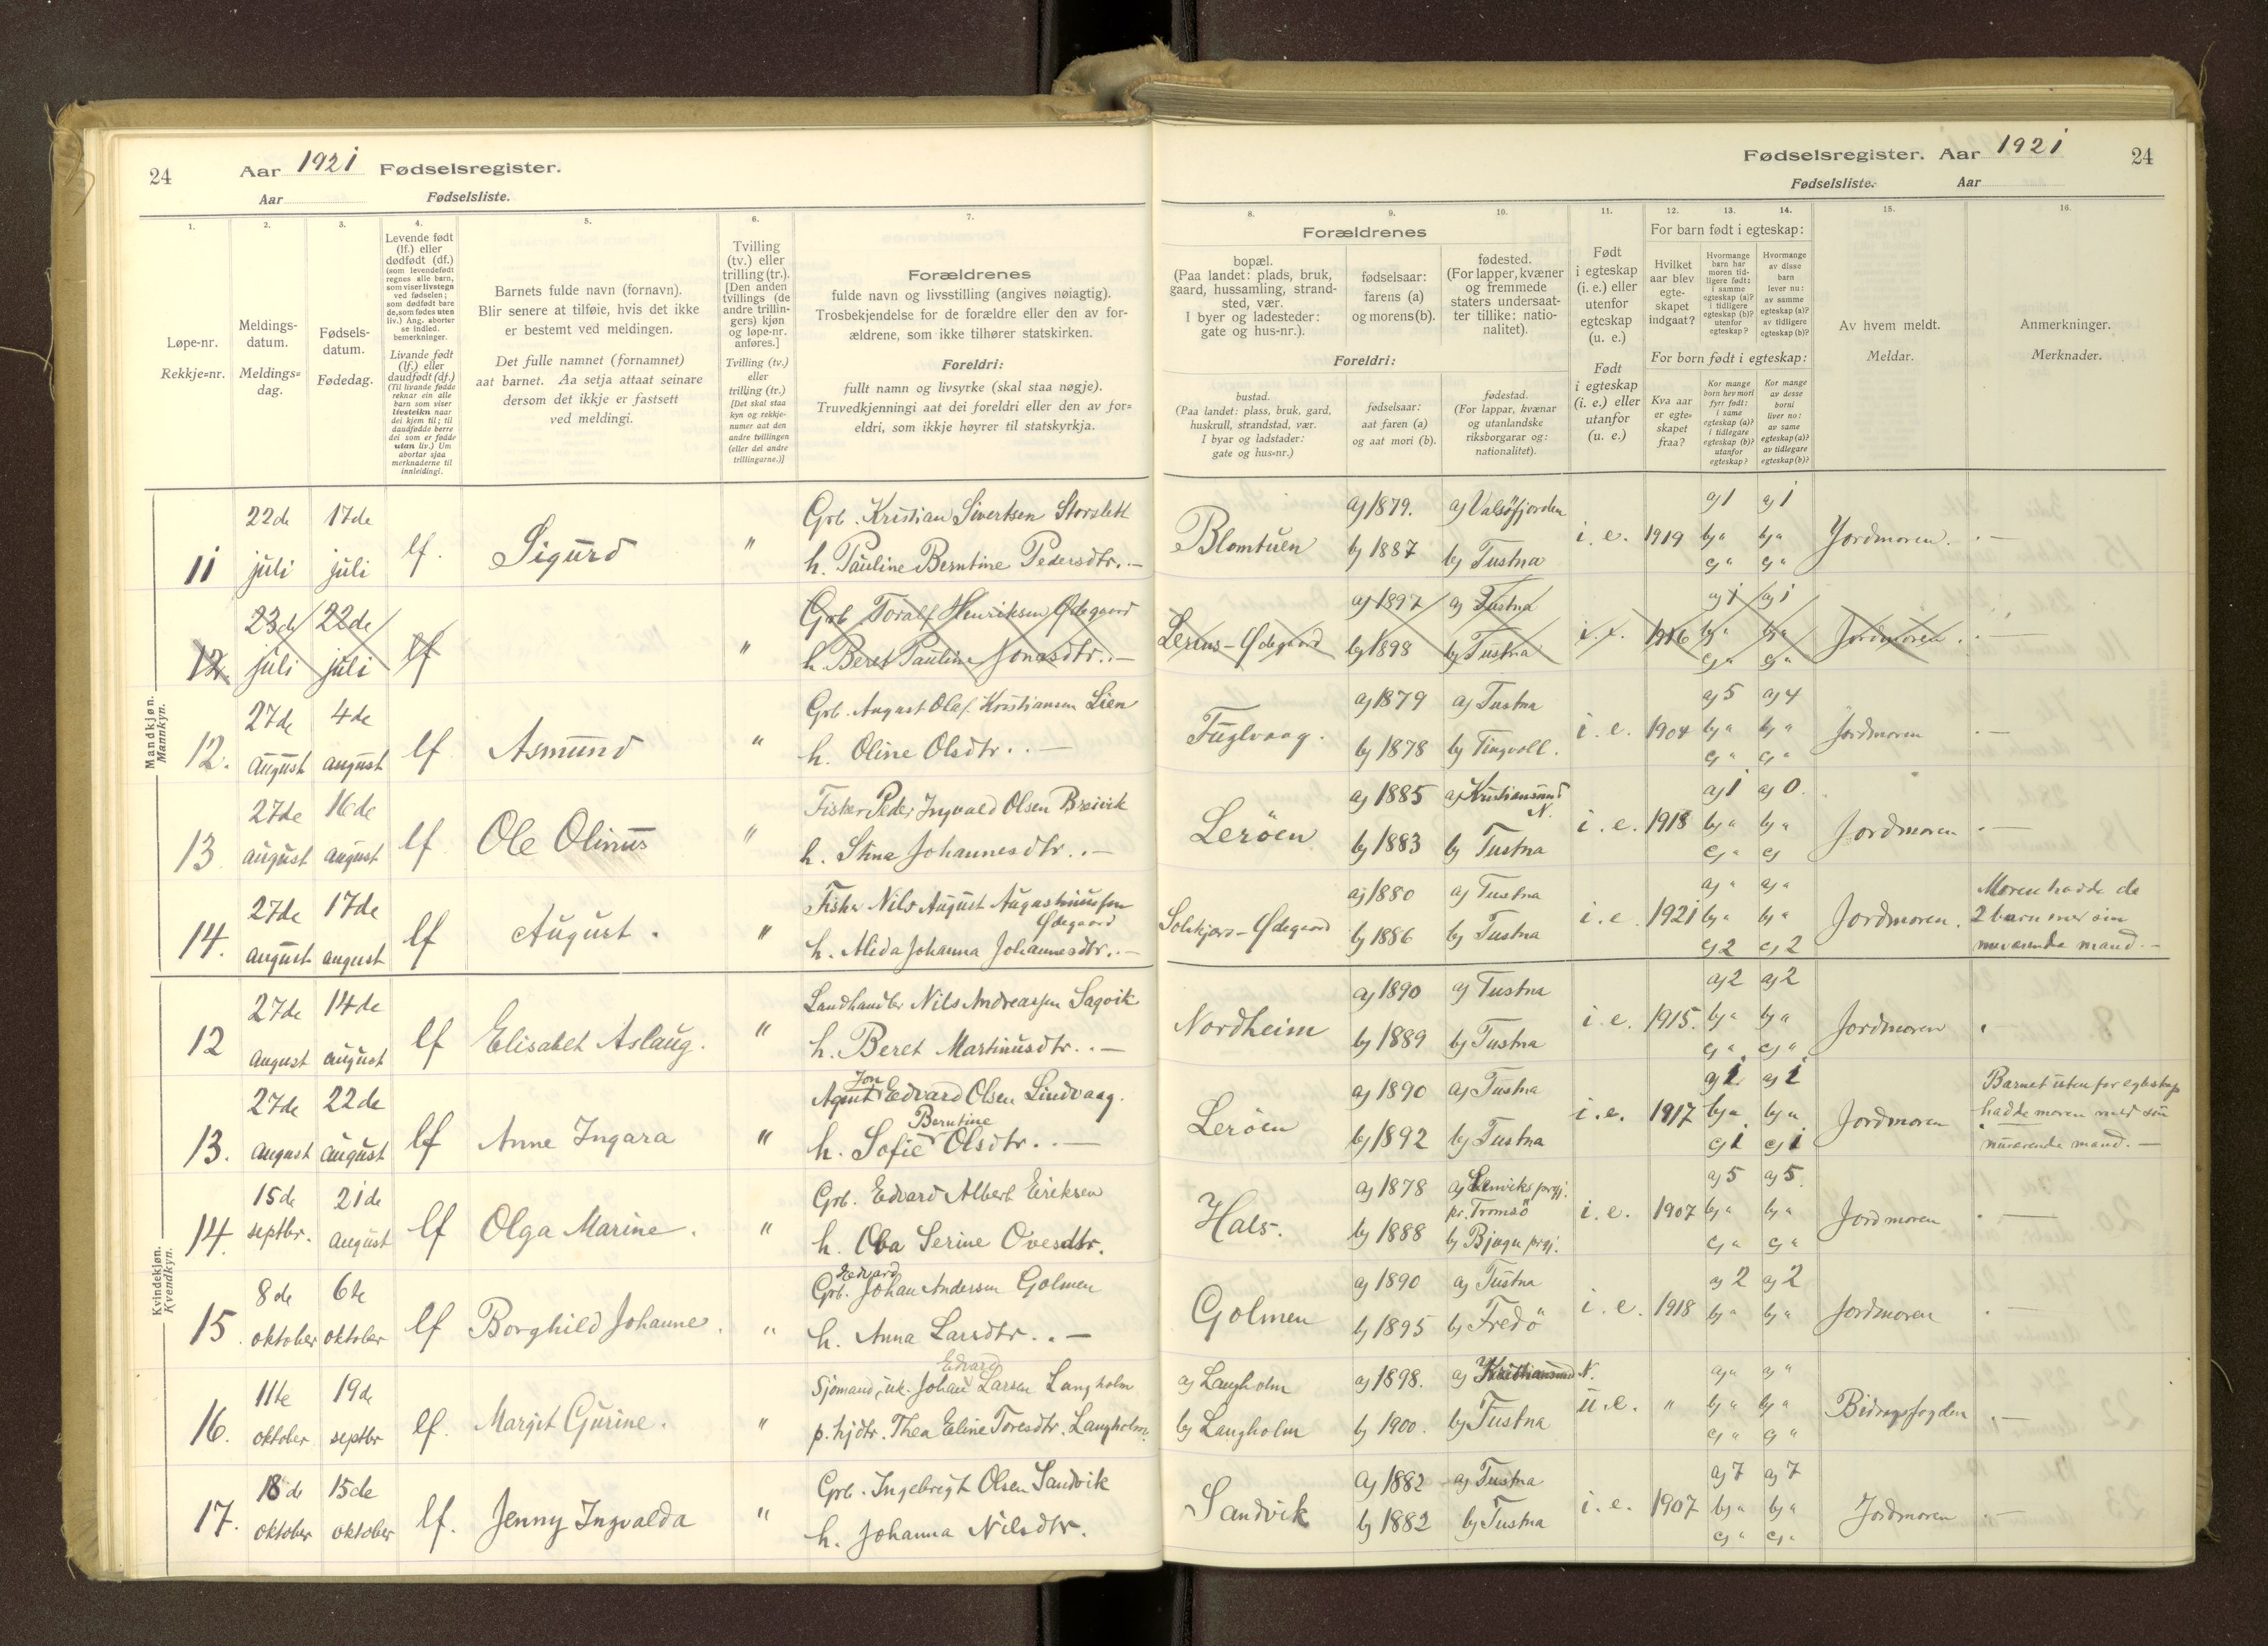 24 Aar 1921 Fødselsregister.
Aar Fødselsliste.
Fødselsregister. Aar 1921 24
Fødselsliste. Aar
1. 2. 3. 4. 5. 6. 7.
Løpe-nr.
Rekkje=nr.
Meldings-
datum.
Meldings=
dag.
Fødsels-
datum.
Fødedag.
Levende født
(lf.) eller
dødfødt (df.)
(som levendefødt
regnes alle barn,
som viser livstegn
ved fødselen;
som dødfødt bare
de, som fødes uten
liv.) Ang. aborter
se indled.
bemerkninger.
Livande født
(lf.) eller
daudfødt (df.)
(Til livande fødde
reknar ein alle
barn som viser
livsteikn naar
dei kjem til; til
daudfødde berre
dei som er fødde
utan liv.) Um
abortar sjaa
merknaderne til
innleidingi.
Barnets fulde navn (fornavn).
Blir senere at tilføie, hvis det ikke
er bestemt ved meldingen.
Det fulle namnet (fornamnet)
aat barnet. Aa setja attaat seinare
dersom det ikkje er fastsett
ved meldingi.
Tvilling
(tv.) eller
trilling (tr.).
[Den anden
tvillings (de
andre trillin-
gers) kjøn
og løpe-nr.
anføres.]
Tvilling (tv.)
eller
trilling (tr.)
[Det skal staa
kyn og rekkje-
numer aat den
andre tvillingen
(eller dei andre
trillingarne.)]
Forældrenes
fulde navn og livsstilling (angives nøiagtig).
Trosbekjendelse for de forældre eller den av for-
ældrene, som ikke tilhører statskirken.
Foreldri:
fullt namn og livsyrke (skal staa nøgje).
Truvedkjenningi aat dei foreldri eller den av for=
eldri, som ikkje høyrer til statskyrkja.
8. 9. 10. 11. 12. 13. 14. 15. 16.
Forældrenes
bopæl.
(Paa landet: plads, bruk,
gaard, hussamling, strand-
sted, vær.
I byer og ladesteder:
gate og hus-nr.).
fødselsaar:
farens (a)
og morens (b).
fødested.
(For lapper, kvæner
og fremmede
staters undersaat-
ter tillike: natio-
nalitet).
Foreldri:
bustad.
(Paa landet: plass, bruk, gard,
huskrull, strandstad, vær.
I byar og ladstader:
gate og hus=nr.)
fødselsaar:
aat faren (a)
og aat mori (b).
fødestad.
(For lappar, kvænar
og utanlandske
riksborgarar og:
nationalitet).
Født
i egteskap
(i. e.) eller
utenfor
egteskap
(u. e.)
Født
i egteskap
(i. e.) eller
utanfor
(u. e.)
For barn født i egteskap:
Hvilket
aar blev
egte-
skapet
indgaat?
Hvormange
barn har
moren tid-
ligere født:
i samme
egteskap (a)?
i tidligere
egteskap (b)?
utenfor
egteskap?
Hvormange
av disse
barn
lever nu:
av samme
egteskap (a)?
av tidligere
egteskap (b)?
For born født i egteskap:
Kva aar
er egte=
skapet
fraa?
Kor mange
born hev mori
fyrr født:
i same
egteskap (a)?
i tidlegare
egteskap (b)?
utanfor
egteskap?
Kor mange
av desse
borni
liver no:
av same
egteskap (a)?
av tidlegare
egteskap (b)?
Av hvem meldt.
Meldar.
Anmerkninger.
Merknader.
Mandkjøn.
Mannkyn.
22de 17de Grb. Kristian Sivertsen Storslett a) 1879. a) Valsøfjorden a) 1 a) 1
11 juli juli lf. Sigurd " h. Pauline Berntine Pedersdtr. .— Blomtuen b) 1887 b) Tustna i. e. 1919 b) " b) " c) " c) " Jordmoren. .—
23de 22de Grb Toralf Henriksen Ødegaard a) 1897 a) Tustna a) 1 a) 1
12. juli juli lf " h. Beret Pauline Jonasdtr. .— Ødegaard b) 1898 b) Tustna i. e. 1916 b) " b) " c) " c) " Jordmoren. .—
27de 4de Grb. August Olaf Kristiansen Lien a) 1879 a) Tustna a) 5 a) 4
12. august august lf Asmund " h. Oline Olsdtr. .— Fuglvaag. b) 1878 b) Tingvoll. i. e. 1904 b) " b) " c) " c) " Jordmoren .—
27de 16de Fisker Peder Ingvald Olsen Breivik a) 1885 a) Kristiansund N. a) 1 a) 0.
13 august august lf Ole Olinus " h. Stina Johannesdtr. .— Lerøen b) 1883 b) Tustna i. e. 1918 b) " b) " c) " c) Jordmoren .—
27de 17de Fisker Nils August Ødegaard a) 1880 a) Tustna a) " a) " Moren hadde de
14. august august lf August. " h. Alida Johanna Johannesdtr. .— Ødegaard b) 1886 b) Tustna i. e 1921 b) " b) " c) 2 c) 2 Jordmoren. 2 barn med sin
nuværende mand. —
Kvindekjøn.
Kvendkyn.
27de 14de Landhandler Nils Andreassen Sagvik a) 1890 a) Tustna a) 2 a) 2
12 august august lf Elisabet Aslaug. " h. Beret Martinusdtr. .— Nordheim b) 1889 b) Tustna i. e. 1915. b) " b) " c) " c) " Jordmoren .
27de 22de Agent Jon Edvard Olsen Lindvaag. a) 1890 a) Tustna a) 1 a) 1 Barnet utenfor egteskap
13. august august lf Anne Ingara " h. Sofie Berntine Olsdtr. .— Lerøen b) 1892 b) Tustna i. e. 1917 b) " b) " c) 1 c) 1 Jordmoren hadde moren med sin
nuværende mand. —
15de 21de Grb. Edvard Albert Eriksen a) 1878 a) Lenviks prgj. pr. Tromsø a) 5 a) 5.
14. septbr. august lf Olga Marine. " h. Serine Ovesdtr. Hals. b) 1888 b) Bjugn prgj. i. e. 1907 b) " b) " c) " c) " Jordmoren .—
8de 6te Grb. Johan Edvard Andersen Golmen a) 1890 a) Tustna a) 2 a) 2
15. oktober oktober lf Borghild Johanne. " h. Anna Larsdtr. .— Golmen b) 1895 b) Fredø i. e. 1918 b) " b) " Jordmoren .—
11te 19de Sjømand, uk. Johan Edvard Larsen Langholm a) Langholm a) 1898. a) Kristiansund N. a) " a) "
16. oktober septbr lf. Margit Gurine. " p. hjdtr. Thea Eline Toresdtr. Langholm. b) Langholm b) 1900. b) Tustna u. e. " b) " b) " c) " c) " Bidragsfogden .—
18de 15de Grb. Ingebrigt Olsen Sandvik a) 1882 a) Tustna a) 7 a) 7
17. oktober oktober lf. Jenny Ingvalda " h. Johanna Nilsdtr. Sandvik b) 1882 b) Tustna i. e. 1907 b) " b) " c) " c) " Jordmoren .—